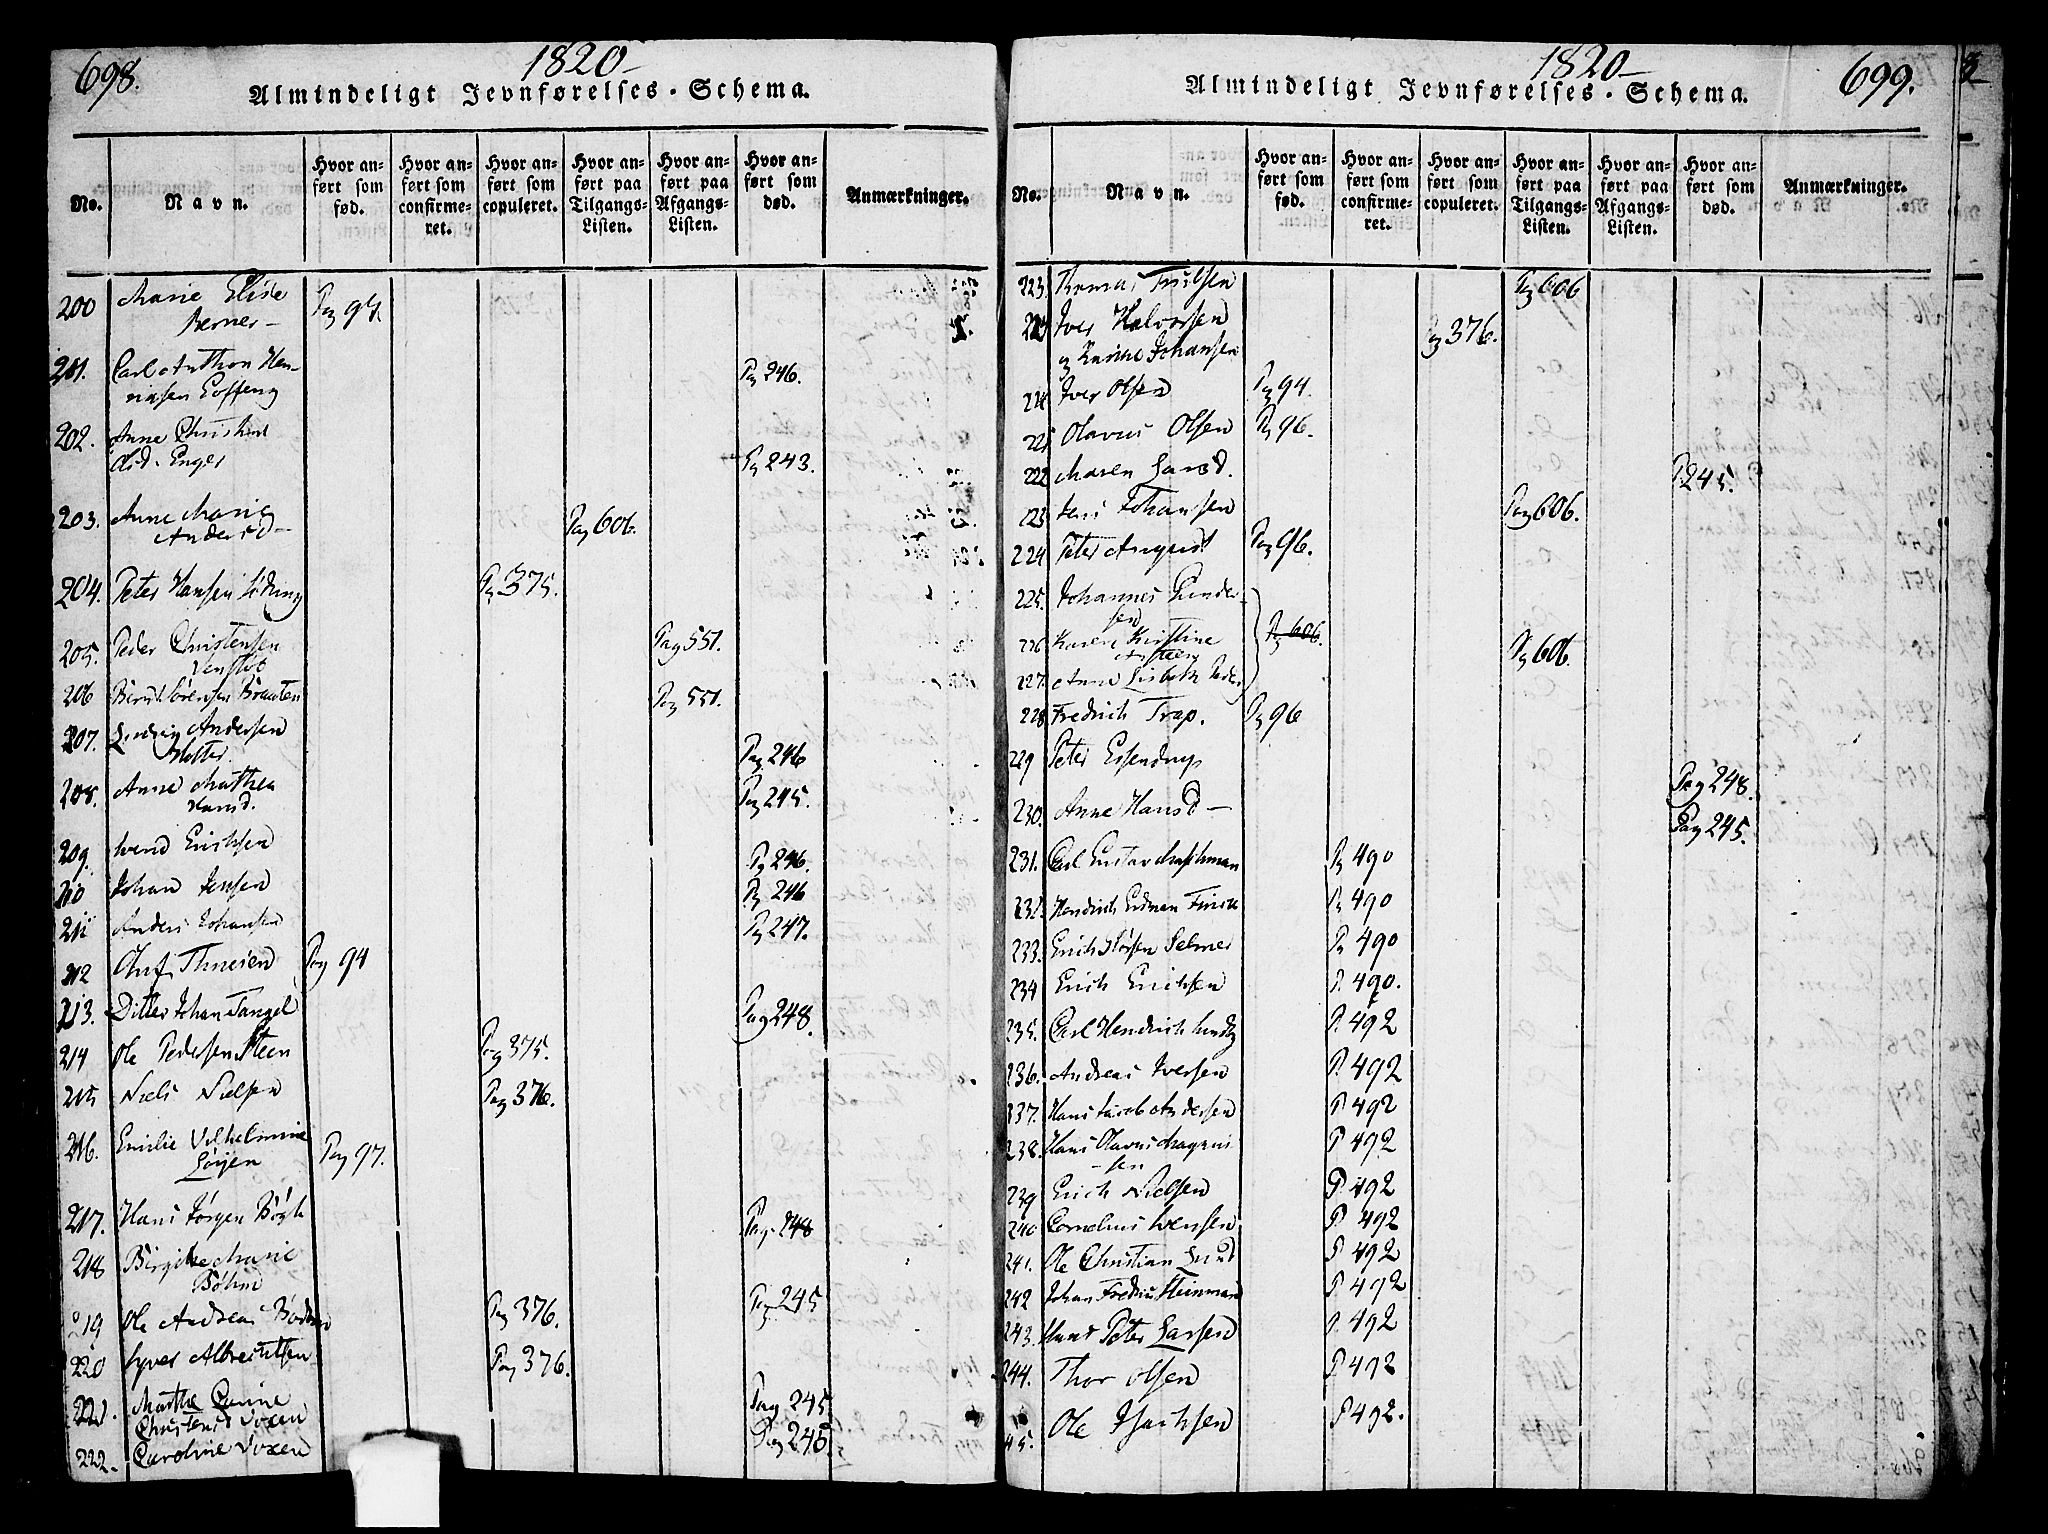 698.
1820-
Almindeligt Jevnførelses-Schema.
No.
Navn.
Hvor anført som født.
Hvor anført som confirmeret.
Hvor anført som copuleret.
Hvor anført paa Tilgangs-Listen.
Hvor anført paa Afgangs-Listen.
Hvor anført som død.
Anmærkninger.
200 Marie Elise Pag 97.
Berner-
201. Carl Anthon Hen- Pag 246.
202. Anne Christine
Olsd. Enger Pg 243.
203. Anne Marie Pag 606.
Andersd-
204. Peter Hansen Pg 375.
205. Peder Christensen Pag 551.
206 Bernt Sørensen Braaten Pag 551.
207. Ludvig Andersen
Pag 246
208. Anne Mathea Pag 245.
Hansd.
209. Svend Erichsen Pg 246.
210 Johan Jensen Pg 246
211 Anders Johansen Pg 247.
212 Pag 94
213. Johan Tangel Pag 248.
214 Ole Pedersen Steen Pag 375.
215 Niels Nielsen Pag 376.
216. Emilie Vilhelmine Pag 97.
217. Hans Jørgen Bøgh Pag. 248
218 Birgitte Marie
Bøhm Pag 245
219 Ole Andreas Pag 376.
220 Syver Albrechtsen Pag 376.
221. Marthe Carine Pag 245.
Christensd Voxen
222. Caroline Voxen Pag 245.
1820-
699.
Almindeligt Jevnførelses-Schema.
No.
Navn.
Hvor anført som fød.
Hvor anført som confirmeret.
Hvor anført som copuleret.
Hvor anført paa Tilgangs-Listen.
Hvor anført paa Afgangs-Listen.
Hvor anført som død.
Anmærkninger.
223. Pag 606
Iver Halvorsen Pag 376.
Johansen
Iver Olsen Pag 94.
Olavus Olsen Pg 96.
222 Maren Larsd. P 245.
223 Jens Johansen Pag 606.
224 Peter August Pag 96.
225. Johannes Gunder-
sen Pg 606.
226 Karen Kristine Pg 606.
227. Anne Lisbeth Peders
228 Fredrich Trap. Pg 96
229 Peter Essendrup Pag 248.
230. Anne Hansd- Pag 245.
231. Carl Gustav Maschman Pg 490
232. Hendrich Pg 490
233. Erich Selmer Pg 490
234 Erich Erichsen P. 490.
235. Carl Hendrich P. 492
236. Andreas Iversen P. 492
237. Hans Jacob Andersen P. 492
238. Hans Olavus Magnus P. 492
-sen
239 Erich Nielsen P. 492
240 Cornelius Iversen P. 492
241. Ole Christian Lund P. 492
242 Johan Fredric Heinmand P. 492
243. Hans Peter Larsen P. 492
244. Thor Olsen P. 492
45. Ole Isachsen P 492.